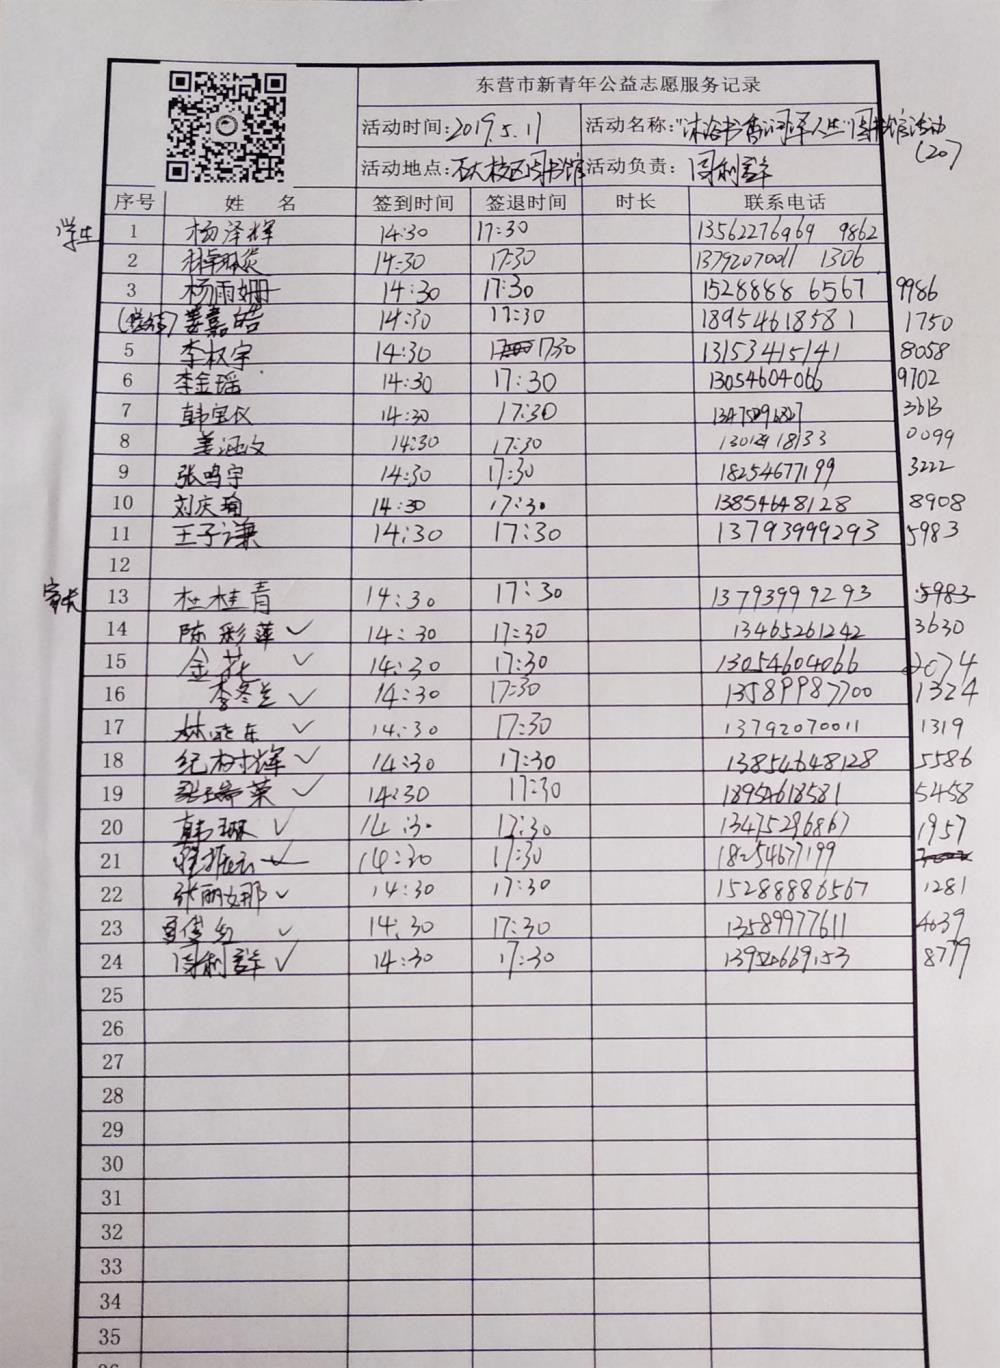 东营市新青年公益志愿服务记录
活动时间:2019.5.11 活动名称:"沐浴书香 润泽人生"图书馆活动
(20)
活动地点:石大校区图书馆 活动负责: 周利群
序号 姓 名 签到时间 签退时间 时长 联系电话
学生 1 杨泽辉 14:30 17:30 13562276969 9862
2 14:30 17:30 13792070011 1306
3 杨雨姗 14:30 17:30 1528888 6567 9986
姜嘉皓 14:30 17:30 18954618581 1750
5 李权宇 14:30 17:30 13153415141 8058
6 李金瑶 14:30 17:30 13054604066 9702
7 韩宝仪 14:30 17:30 3613
8 姜涵文 14:30 17:30 0099
9 张鸣宇 14:30 17:30 18254677199 3222
10 刘庆瑜 14:30 17:30 13854648128 8908
11 王子谦 14:30 17:30 13793999293 5983
12
家长 13 杜桂青 14:30 17:30 13793999293 5983
14 陈彩萍 ✓ 14:30 17:30 13465261242 3630
15 金花 ✓ 14:30 17:30 13054604066 2074
16 李冬兰 ✓ 14:30 17:30 13589987700 1324
17 林延东 ✓ 14:30 17:30 13792070011 1319
18 纪树辉 ✓ 14:30 17:30 13854648128 5586
19 ✓ 14:30 17:30 18954618581 5458
20 韩琳 ✓ 14:30 17:30 13475296867 1957
21 ✓ 14:30 17:30 18254677199
22 张丽娜 ✓ 14:30 17:30 15288886567 1281
23 ✓ 14:30 17:30 13589977611 4639
24 周利群 ✓ 14:30 17:30 13954669153 8779
25
26
27
28
29
30
31
32
33
34
35